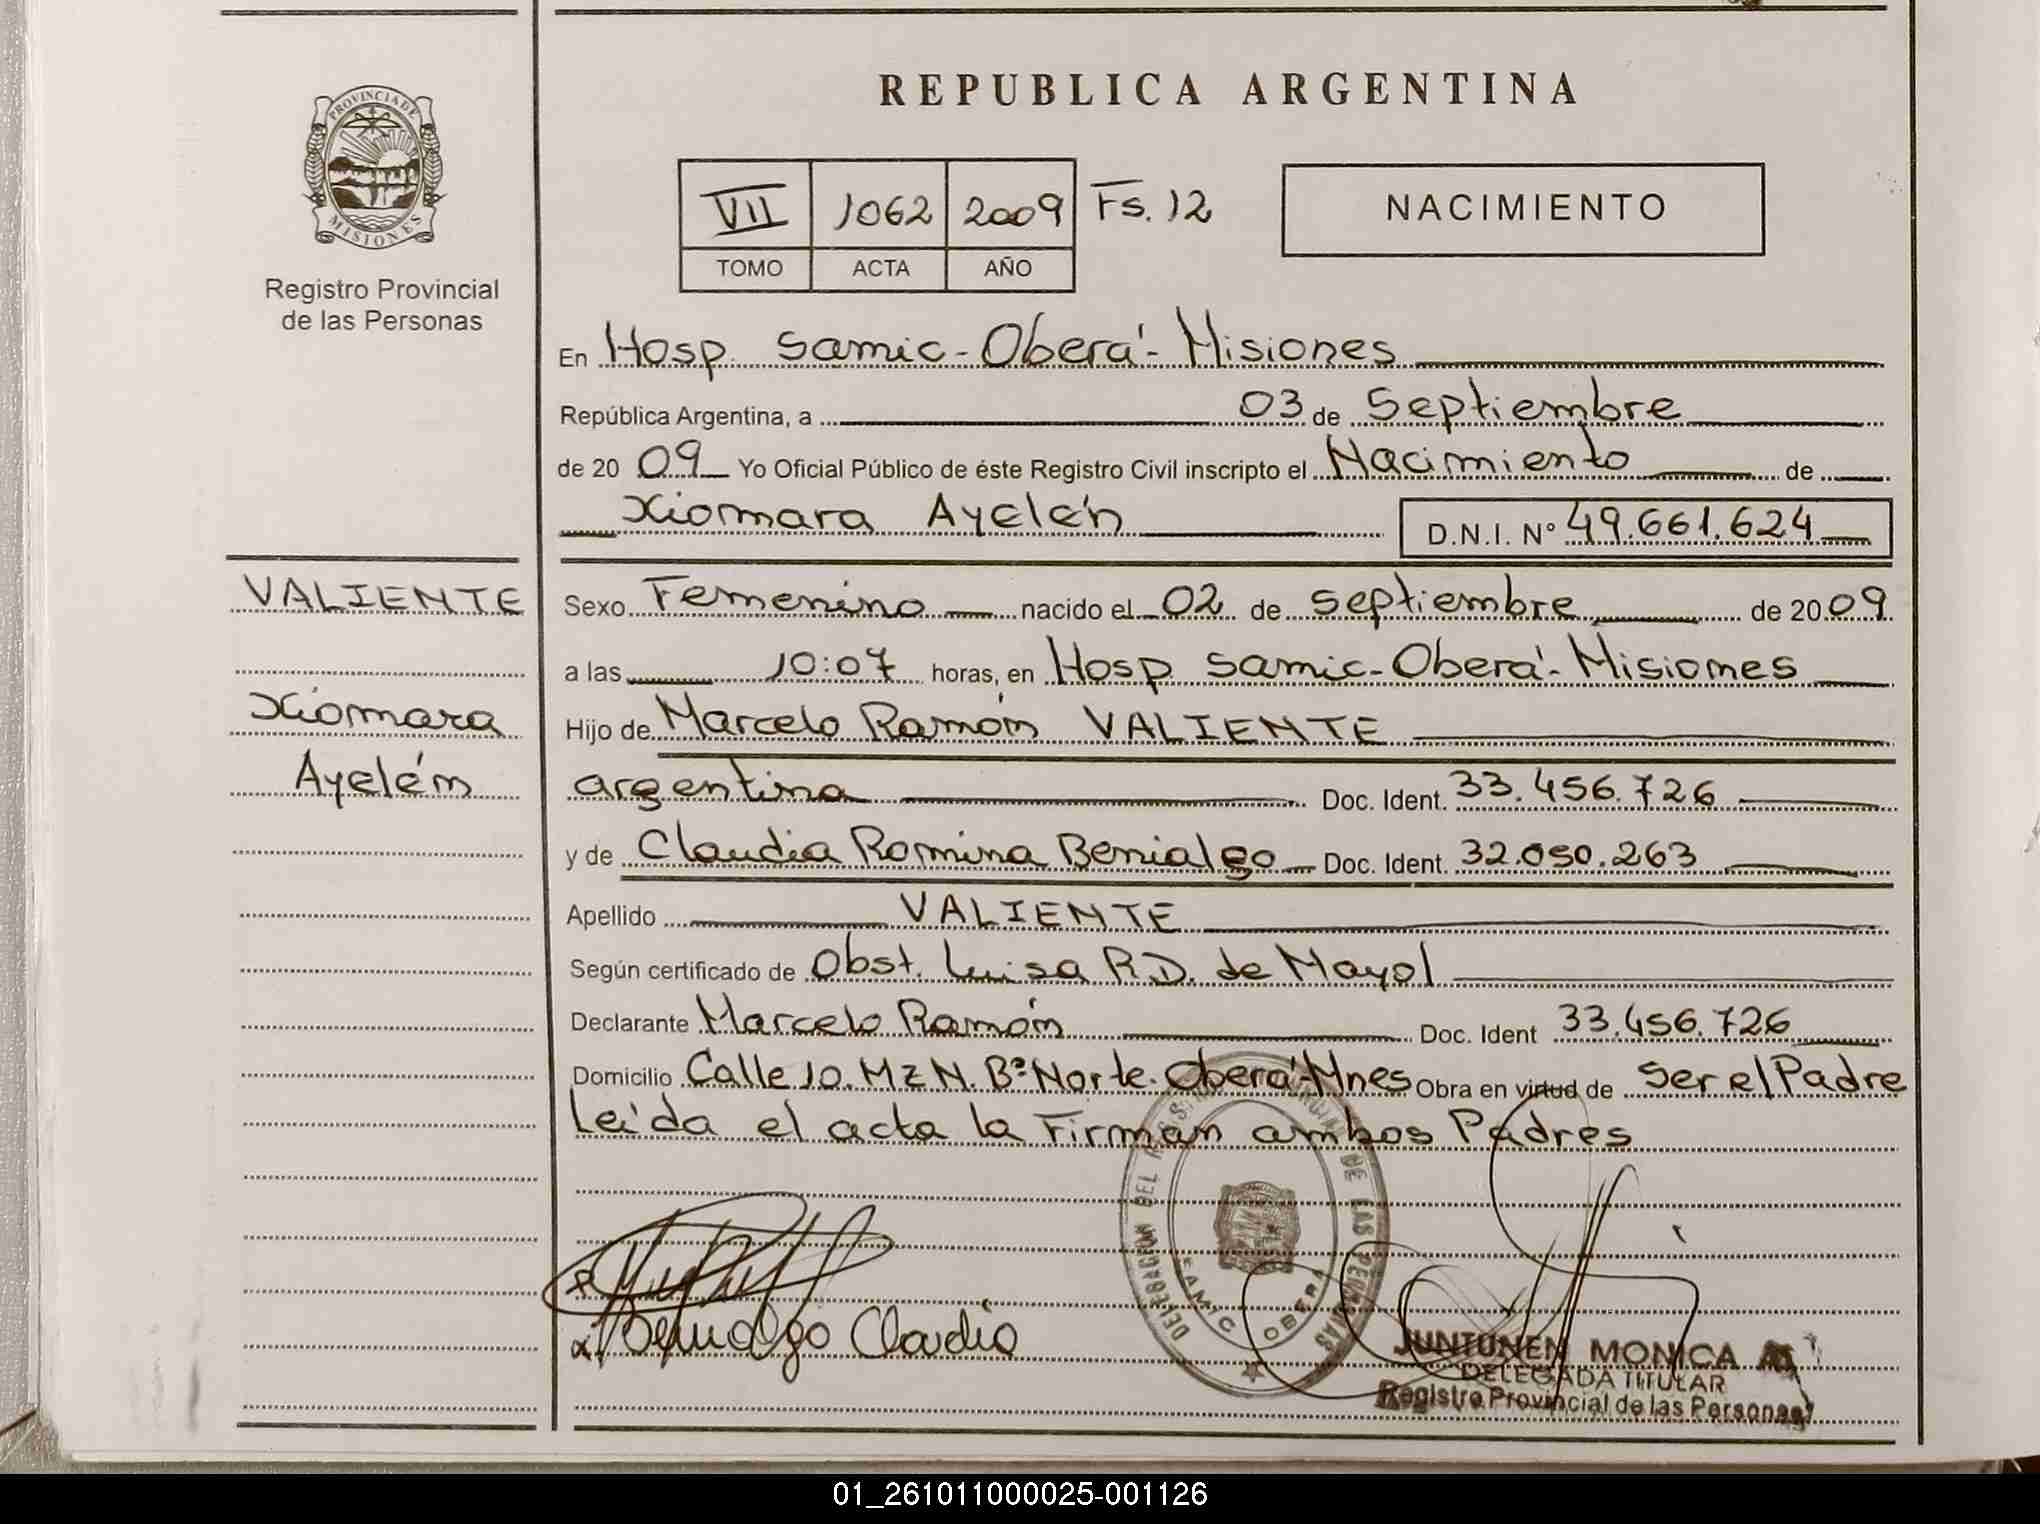 REPUBLICA ARGENTINA
PROVINCIA DE
MISIONES
Registro Provincial
de las Personas
VII 1062 2009 Fs. 12
TOMO ACTA AÑO
NACIMIENTO
En Hosp. Samic - Oberá - Misiones
República Argentina, a 03 de Septiembre
de 20 09 Yo Oficial Público de éste Registro Civil inscripto el Nacimiento de
Xiomara Ayelén D.N.I. Nº 49.661.624
VALIENTE
Xiomara
Ayelén
Sexo Femenino nacido el 02 de septiembre de 20 09
a las 10:07 horas, en Hosp Samic - Oberá - Misiones
Hijo de Marcelo Ramón VALIENTE
argentina Doc. Ident. 33.456.726
y de Claudia Romina Benialgo Doc. Ident. 32.050.263
Apellido VALIENTE
Según certificado de Obst. Luisa R.D. de Mayol
Declarante Marcelo Ramón Doc. Ident 33.456.726
Domicilio Calle 10. Mz N. Bº Norte. Oberá - Mnes Obra en virtud de Ser el Padre
Leída el acta la Firman ambos Padres
DELEGACION DEL DE LAS PERSONAS
SAMIC OBERA
Benialgo Claudia
JUNTUNEN MONICA
DELEGADA TITULAR
Registro Provincial de las Personas
01_261011000025-001126